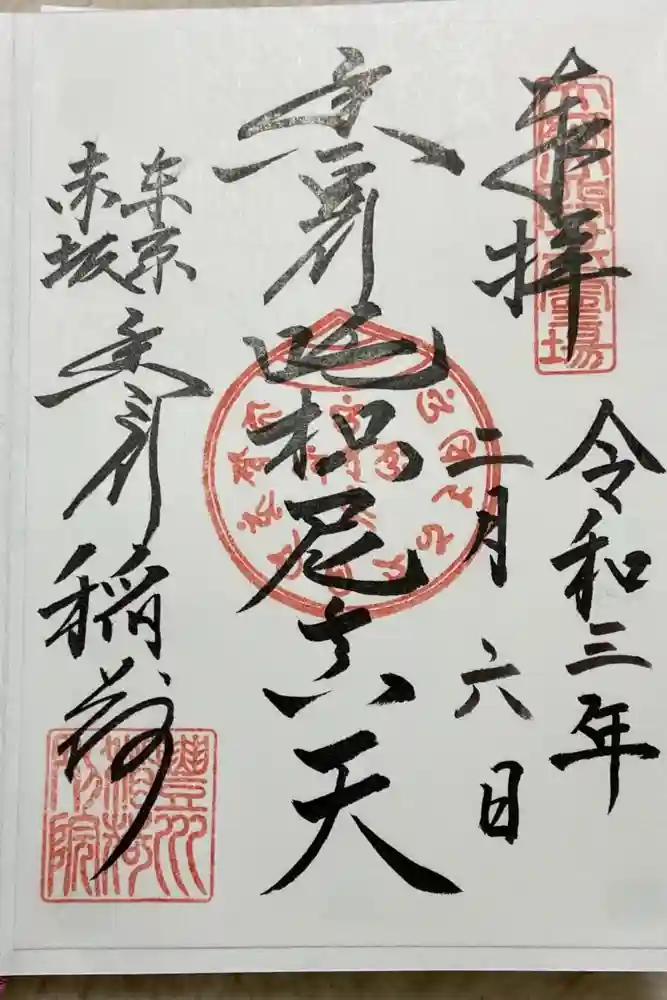 奉拝
令和三年
二月六日
豊川吒枳尼真天
東京
赤坂
豊川稲荷
豐川
稲荷
別院